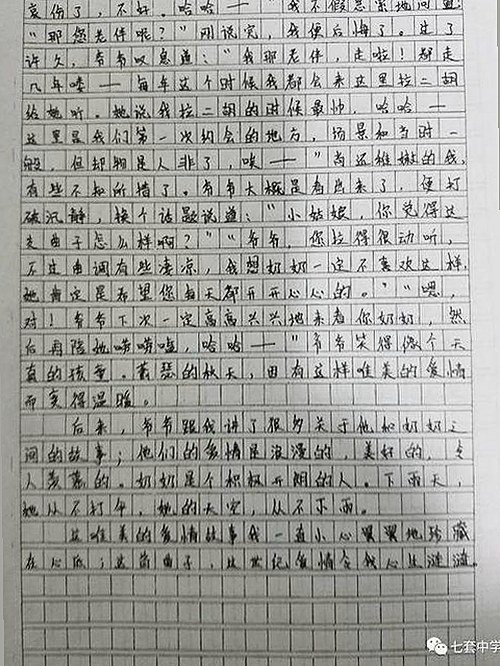 哀伤了，不好。哈哈——”我不假思索地问道：
“那您老伴呢？”刚说完，我便后悔了。过了
许久，爷爷叹息道：“我那老伴，走啦！都走
几年喽——每年这个时候我都会来这里拉二胡
给她听。她说我拉二胡的时候最帅，哈哈——
这里是我们第一次约会的地方，场景和当时一
般，但却物是人非了，唉——”尚还稚嫩的我，
有些不知所措了。爷爷大概是看出来了，便打
破沉静，换个话题说道：“小姑娘，你觉得这
支曲子怎么样啊？”“爷爷，你拉得很动听，
不过曲调有些凄凉，我想奶奶一定不喜欢这样，
她肯定是希望你每天都开开心心的。”“嗯，
对！爷爷下次一定高高兴兴地来看你奶奶，然
后再陪她唠唠嗑，哈哈——”爷爷笑得像个天
真的孩童。萧瑟的秋天，因有这样唯美的爱情
而变得温暖。
后来，爷爷跟我讲了很多关于他和奶奶之
间的故事；他们的爱情是浪漫的，美好的，令
人羡慕的。奶奶是个积极开朗的人。下雨天，
她从不打伞，她的天空，从不下雨。
这唯美的爱情故事我一直小心翼翼地珍藏
在心底；这首曲子，这世纪爱情令我心泛涟漪。
七套中学